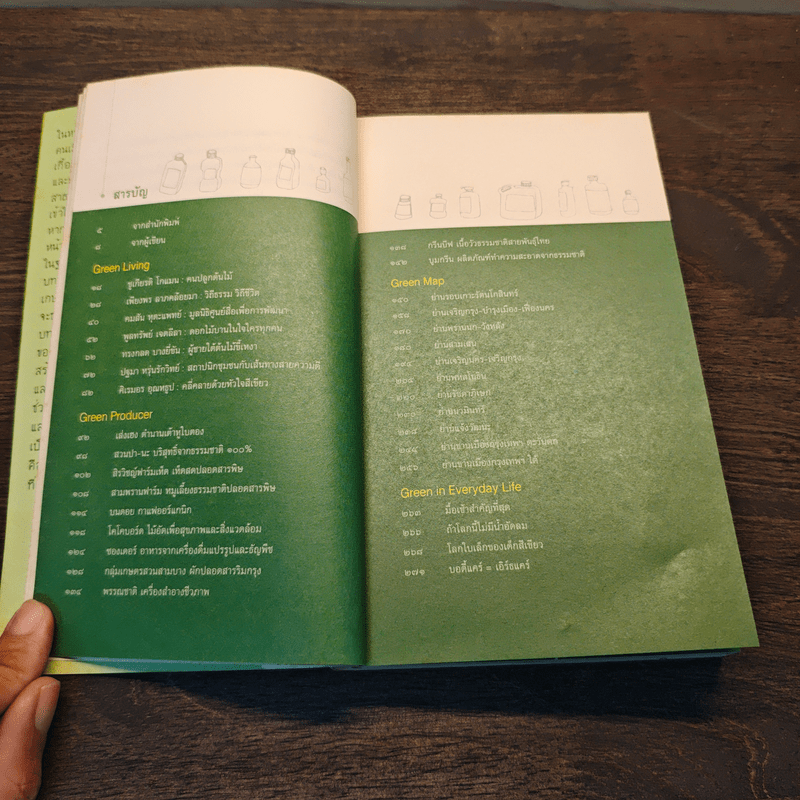 สารบัญ
๕ จากสำนักพิมพ์
๘ จากผู้เขียน
Green Living
๑๘ ชูเกียรติ โกแมน : คนปลูกต้นไม้
๒๘ เพียงพร ลาภคล้อยมา : วิถีธรรม วิถีชีวิต
๔๐ คมสัน หุตะแพทย์ : มูลนิธิศูนย์สื่อเพื่อการพัฒนา
๕๒ พูลทรัพย์ เจตลีลา : ดอกไม้บานในใจใครทุกคน
๖๒ ทรงกลด บางยี่ขัน : ผู้ชายใต้ต้นไม้ขี้เหงา
๗๒ ปฐมา หรุ่นรักวิทย์ : สถาปนิกชุมชนกับเส้นทางสายความดี
๘๒ ศิเรมอร อุณหธูป : คลี่คลายด้วยหัวใจสีเขียว
Green Producer
๙๒ เส่งเฮง ตำนานเต้าหู้ใบตอง
๙๘ สวนปา-นะ บริสุทธิ์จากธรรมชาติ ๑๐๐%
๑๐๒ สิรวิชญ์ฟาร์มเห็ด เห็ดสดปลอดสารพิษ
๑๐๘ สามพรานฟาร์ม หมูเลี้ยงธรรมชาติปลอดสารพิษ
๑๑๔ บนดอย กาแฟออร์แกนิก
๑๑๘ โคโคบอร์ด ไม้อัดเพื่อสุขภาพและสิ่งแวดล้อม
๑๒๔ ซองเดอร์ อาหารจากเครื่องดื่มแปรรูปและธัญพืช
๑๒๘ กลุ่มเกษตรสวนสามบาง ผักปลอดสารริมกรุง
๑๓๔ พรรณชาติ เครื่องสำอางชีวภาพ
๑๓๘ กรีนบีฟ เนื้อวัวธรรมชาติสายพันธุ์ไทย
๑๔๒ บูมกรีน ผลิตภัณฑ์ทำความสะอาดจากธรรมชาติ
Green Map
๑๕๐ ย่านรอบเกาะรัตนโกสินทร์
๑๕๘ ย่านเจริญกรุง-บำรุงเมือง-เฟื่องนคร
๑๗๐ ย่านพรานนก-วังหลัง
๑๘๐ ย่านสามเสน
๑๙๔ ย่านเจริญนคร-เจริญกรุง
ย่านพหลโยธิน
ย่านรัชดาภิเษก
ย่านนวมินทร์
ย่านแจ้งวัฒนะ
ย่านชานเมืองกรุงเทพฯ ตะวันตก
๒๕๖ ย่านชานเมืองกรุงเทพฯ ใต้
Green in Everyday Life
๒๖๓ มื้อเช้าสำคัญที่สุด
๒๖๖ ถ้าโลกนี้ไม่มีน้ำอัดลม
๒๖๘ โลกใบเล็กของเด็กสีเขียว
๒๗๑ บอดี้แคร์ = เอิร์ธแคร์